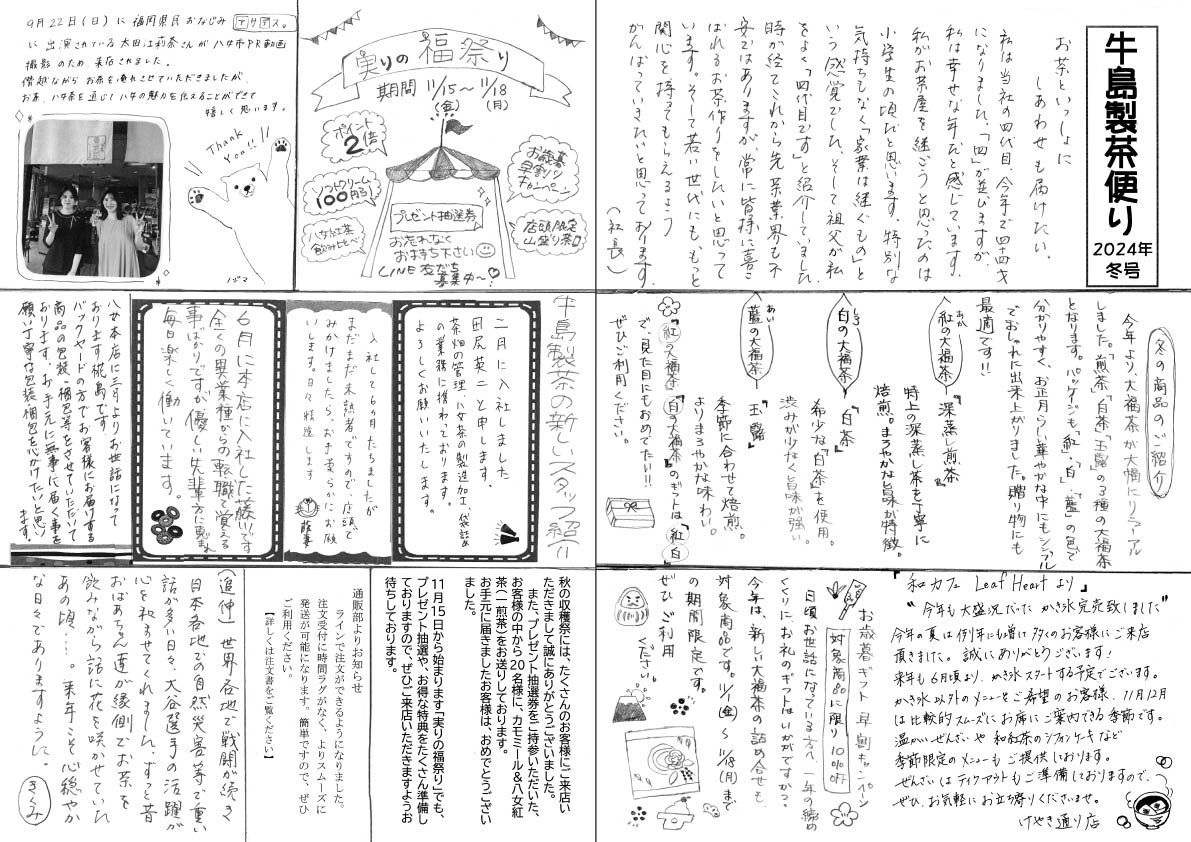 牛島製茶便り
2024年
冬号
お茶といっしょに
しあわせも届けたい。
私は当社の四代目、今年で四十四才
になりました。「四」が並びますが、
私は幸せな年だと感じています。
私がお茶屋を継ごうと思ったのは
小学生の頃だと思います。特別な
気持ちもなく「家業は継ぐもの」と
いう感覚でした。そして祖父が私
をよく「四代目です」と紹介していました。
時が経てこれから先、茶業界も不
安ではありますが、常に皆様に喜こ
ばれるお茶作りをしたいと思って
います。そして若い世代にも、もっと
関心を持ってもらえるよう
がんばっていきたいと思っております。
(社長)
実りの福祭り
期間 11/15(金)〜11/18(月)
ポイント
2倍
お歳暮
早割り
キャンペーン
ソフトクリーム
100円引
プレゼント抽選券
お忘れなく
お持ち下さい
八女紅茶
飲み比べ
店頭限定
山盛り茶
LINE友だち
募集中〜
9月22日(日)に福岡県民おなじみ アサデス。
に出演されている太田江莉奈さんが八女市PR動画
撮影のため、来店されました。
僭越ながらお茶を淹れさせていただきましたが、
お茶、八女茶を通じて八女の魅力を伝えることができて
嬉しく思います。
Thank
You!!
冬の商品のご紹介
今年より、大福茶が大幅にリニューアル
しました。「煎茶」「白茶」「玉露」の3種の大福茶
となります。パッケージも「紅」「白」「藍」の色で
分かりやすく、お正月らしい華やかな中にもシンプル
でおしゃれに出来上がりました。贈り物にも
最適です!!
紅の大福茶
あか
『深蒸し煎茶』
特上の深蒸し茶を丁寧に
焙煎。まろやかな旨味が特徴。
白の大福茶
しろ
『白茶』
希少な「白茶」を使用。
渋みが少なく旨味が強い。
藍の大福茶
あい
『玉露』
季節に合わせて焙煎。
よりまろやかな味わい。
『紅の大福茶』『白の大福茶』のギフトは「紅白」
で、見た目にもおめでたい!!
ぜひご利用ください。
牛島製茶の新しいスタッフ紹介
二月に入社しました
田尻英二と申します。
茶畑の管理、八女茶の製造加工、袋詰め
の業務に携わっております。
よろしくお願いいたします。
入社して6カ月たちましたが
まだまだ未熟者ですので、店頭で
みかけましたら、お手柔らかにお願
いします。日々精進します
6月に本店に入社した篠です
全くの異業種からの転職で覚える
事ばかりですが、優しい先輩方に恵まれ
毎日楽しく働いています。
八女本店に三月よりお世話になって
おります梶島です。
バックヤードの方でお客様にお届けする
商品の包装・梱包等をさせていただいて
おります。お手元に無事に届く事を
願い丁寧な包装・梱包を心がけたいと思い
ます。
『和カフェ Leaf Heartより』
“今年も大盛況だった かき氷完売致しました”
今年の夏は例年にも増して多くのお客様にご来店
頂きました。誠にありがとうございます!
来年も6月頃より、かき氷スタートする予定でございます。
かき氷以外のメニューをご希望のお客様、11月12月
は比較的スムーズにお席にご案内できる季節です。
温かいぜんざいや和紅茶のシフォンケーキなど
季節限定のメニューもご提供しております。
ぜんざいはテイクアウトもご準備しておりますので、
ぜひ、お気軽にお立ち寄りくださいませ。
けやき通り店
お歳暮ギフト 早割キャンペーン
対象商品に限り10%OFF
日頃お世話になっている方へ、一年の締め
くくりにお礼のギフトはいかがですか?
今年は、新しい大福茶の詰め合せも
対象商品です。11/1(金)〜11/18(月)まで
の期間限定です。
ぜひご利用
ください。
秋の収穫祭には、たくさんのお客様にご来店い
ただきまして誠にありがとうございました。
また、プレゼント抽選券をご持参いただいた、
お客様の中から20名様に、カモミール&八女紅
茶(一煎茶)をお送りしております。
お手元に届きましたお客様は、おめでとうござい
ました。
11月15日から始まります「実りの福祭り」でも、
プレゼント抽選や、お得な特典をたくさん準備し
ておりますので、ぜひご来店いただきますようお
待ちしております。
通販部よりお知らせ
ラインで注文ができるようになりました。
注文受付に時間ラグがなく、よりスムーズに
発送が可能になります。簡単ですので、ぜひ
ご利用ください。
【詳しくは注文書をご覧ください】
(追伸) 世界各地で戦闘が続き
日本各地での自然災害等で重い
話が多い日々、大谷選手の活躍が
心を和ませてくれました。ずっと昔
おばあちゃん達が縁側でお茶を
飲みながら話に花を咲かせていた
あの頃…。来年こそ心穏やか
な日々でありますように。
きくみ